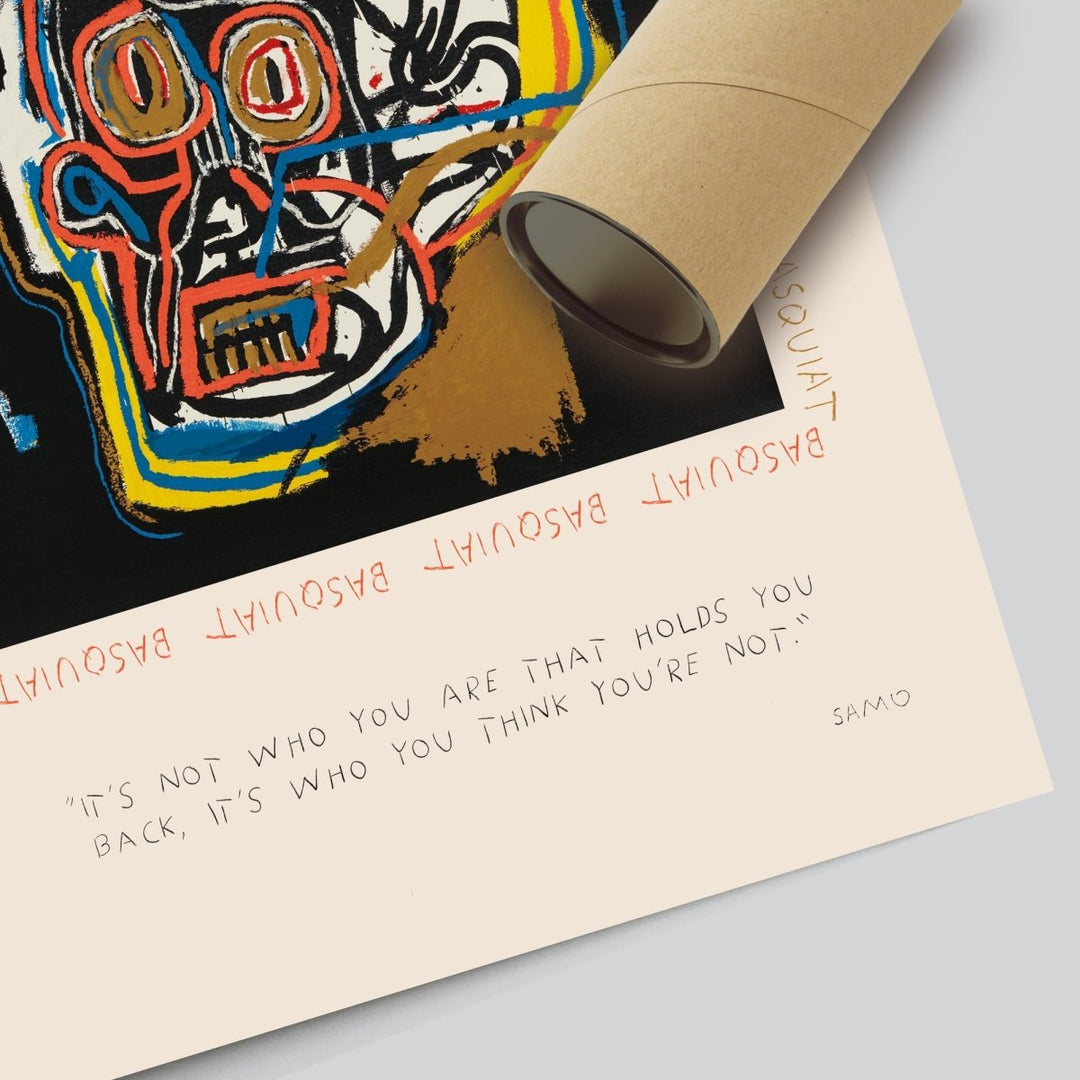 ASQUIAT
BASQUIAT BASQUIAT BASQUIAT BASQUIAT
"IT'S NOT WHO YOU ARE THAT HOLDS YOU
BACK, IT'S WHO YOU THINK YOU'RE NOT."
SAMO